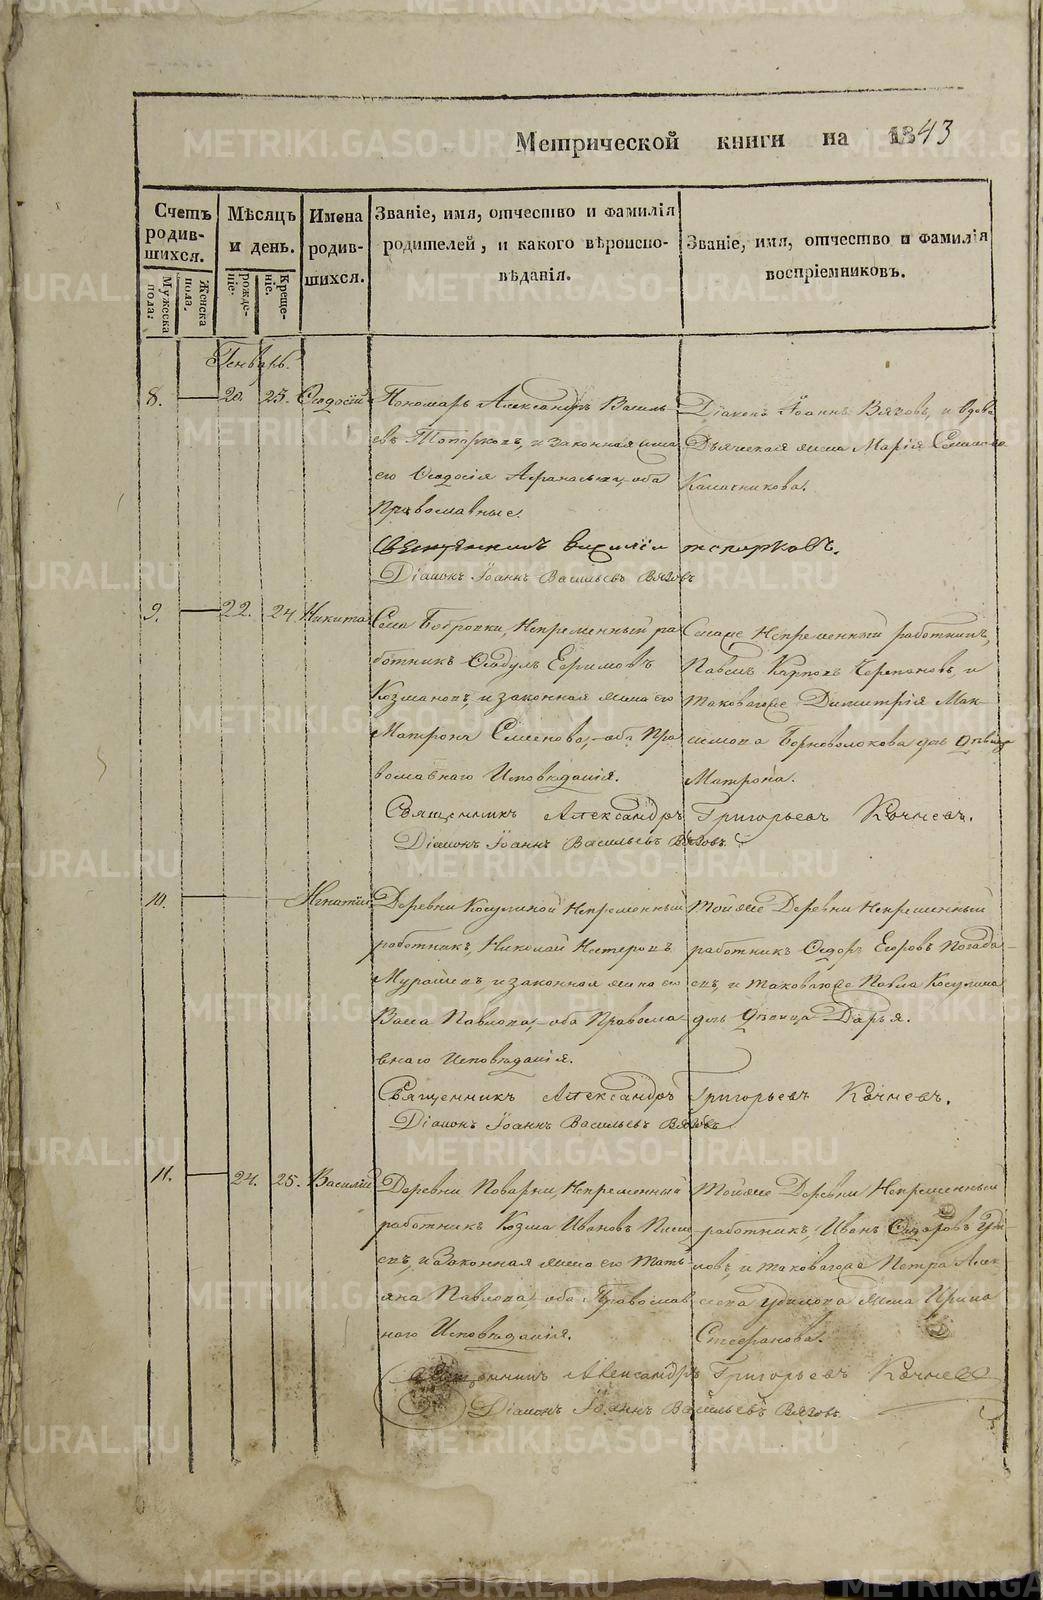 Метрической книги на 1843
Счетъ родившихся.
Мужеска пола:
Женска пола.
Мѣсяцъ и день.
рожденіе.
Крещеніе.
Имена родившихся.
Званіе, имя, отчество и фамилія
родителей, и какого вѣроиспо-
вѣданія.
Званіе, имя, отчество и фамилія
воспріемниковъ.
Генварь.
8. 20. 25. Ѳеодосій
Пономарь Александръ Василь-
евъ Топорковъ, и законная жена
его Ѳеодосія Афанасьева, оба
Православные.
Діаконъ Іоаннъ Вяховъ, и вдова
Дьяческая жена Марія
Священникъ Василій Топорковъ.
Діаконъ Іоаннъ Васильевъ
9. 22. 24. Никита
Села Бобровки, Непременный ра-
ботникъ Ѳеодулъ Ефимовъ
Козмановъ, и законная жена его
Матрона Семенова, оба Пра-
вославнаго Исповѣданія.
Тогоже Непременный работникъ,
Павелъ Карповъ Черепановъ, и
таковагоже Димитрія Мак-
симова Черноволокова дочь Дѣвица
Матрона.
Священникъ Александръ Григорьевъ Кочневъ.
Діаконъ Іоаннъ Васильевъ
10. Игнатій
Деревни Косулиной Непременный
работникъ, Николай Нестеровъ
Мурашевъ и законная жена его
Васса Павлова, оба Правосла-
внаго Исповѣданія.
Тойже Деревни Непременный
работникъ Ѳедоръ Егоровъ Погада-
евъ, и таковагоже Павла Косулина
дочь Дѣвица Дарья.
Священникъ Александръ Григорьевъ Кочневъ.
Діаконъ Іоаннъ Васильевъ
11. 24. 25. Василій
Деревни Поварни, Непременный
работникъ Козма Ивановъ
и Законная жена его Тать-
яна Павлова, оба Православ-
наго Исповѣданія.
Тойже Деревни Непременный
работникъ, Иванъ Ѳедоровъ Уди-
ловъ, и таковагоже Петра Алек-
сѣева Удилова жена Ирина
Стефанова.
Священникъ Александръ Григорьевъ Кочневъ
Діаконъ Іоаннъ Васильевъ
METRIKI.GASO-URAL.RU